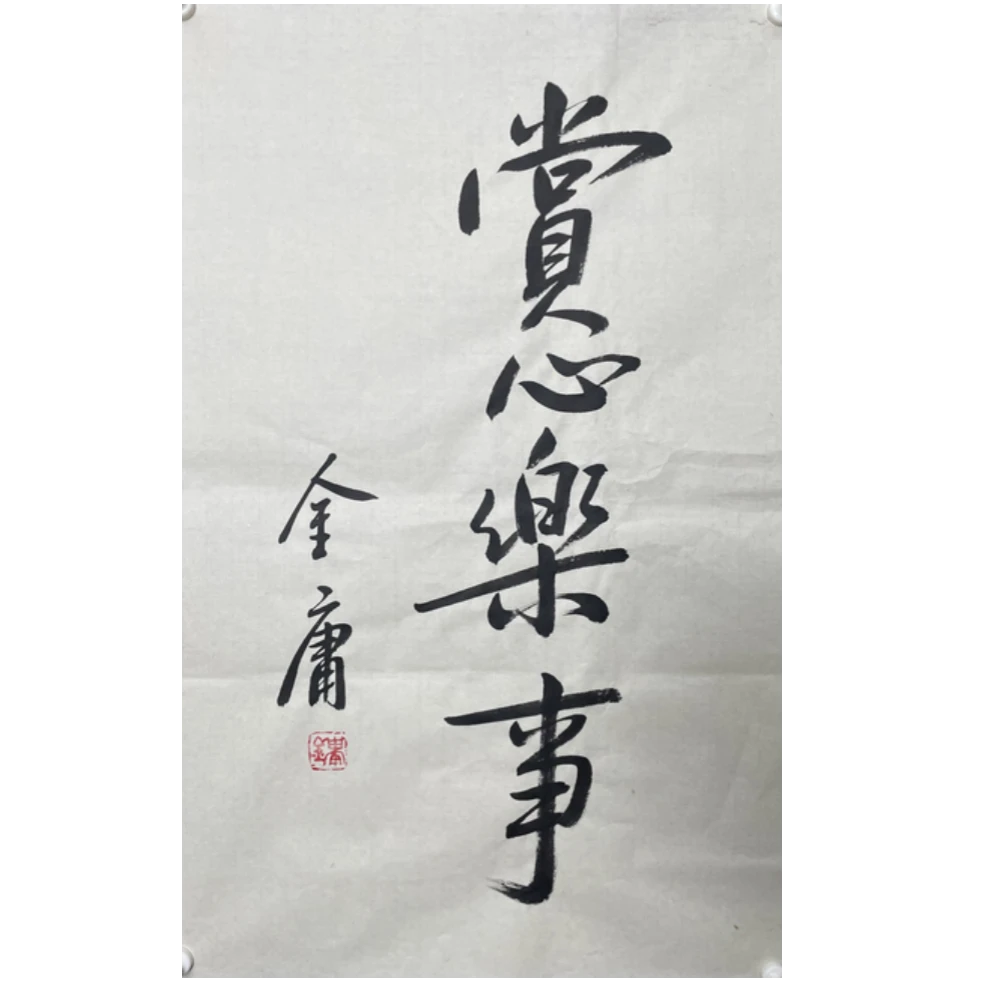 賞心樂事
金庸